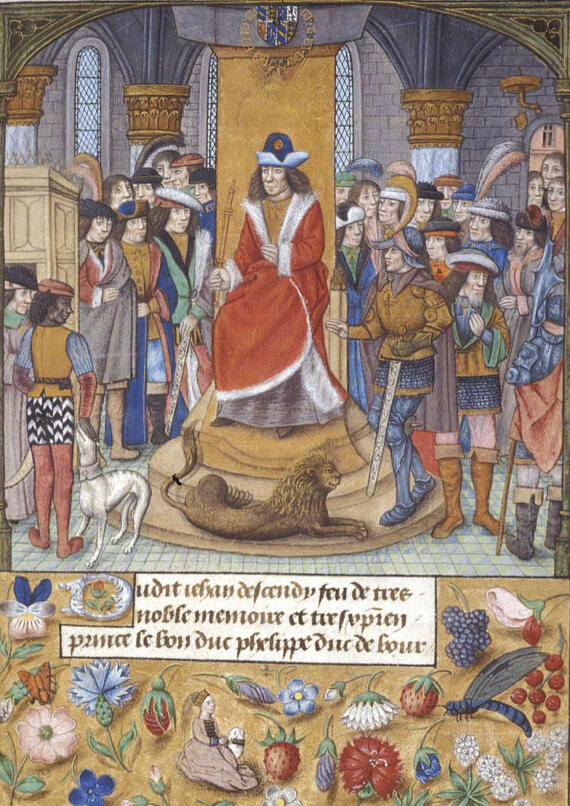 Dudit iehan descendy feu de tres
noble memoire et tresxp̄ien
prince le bon duc phelippe duc de bour